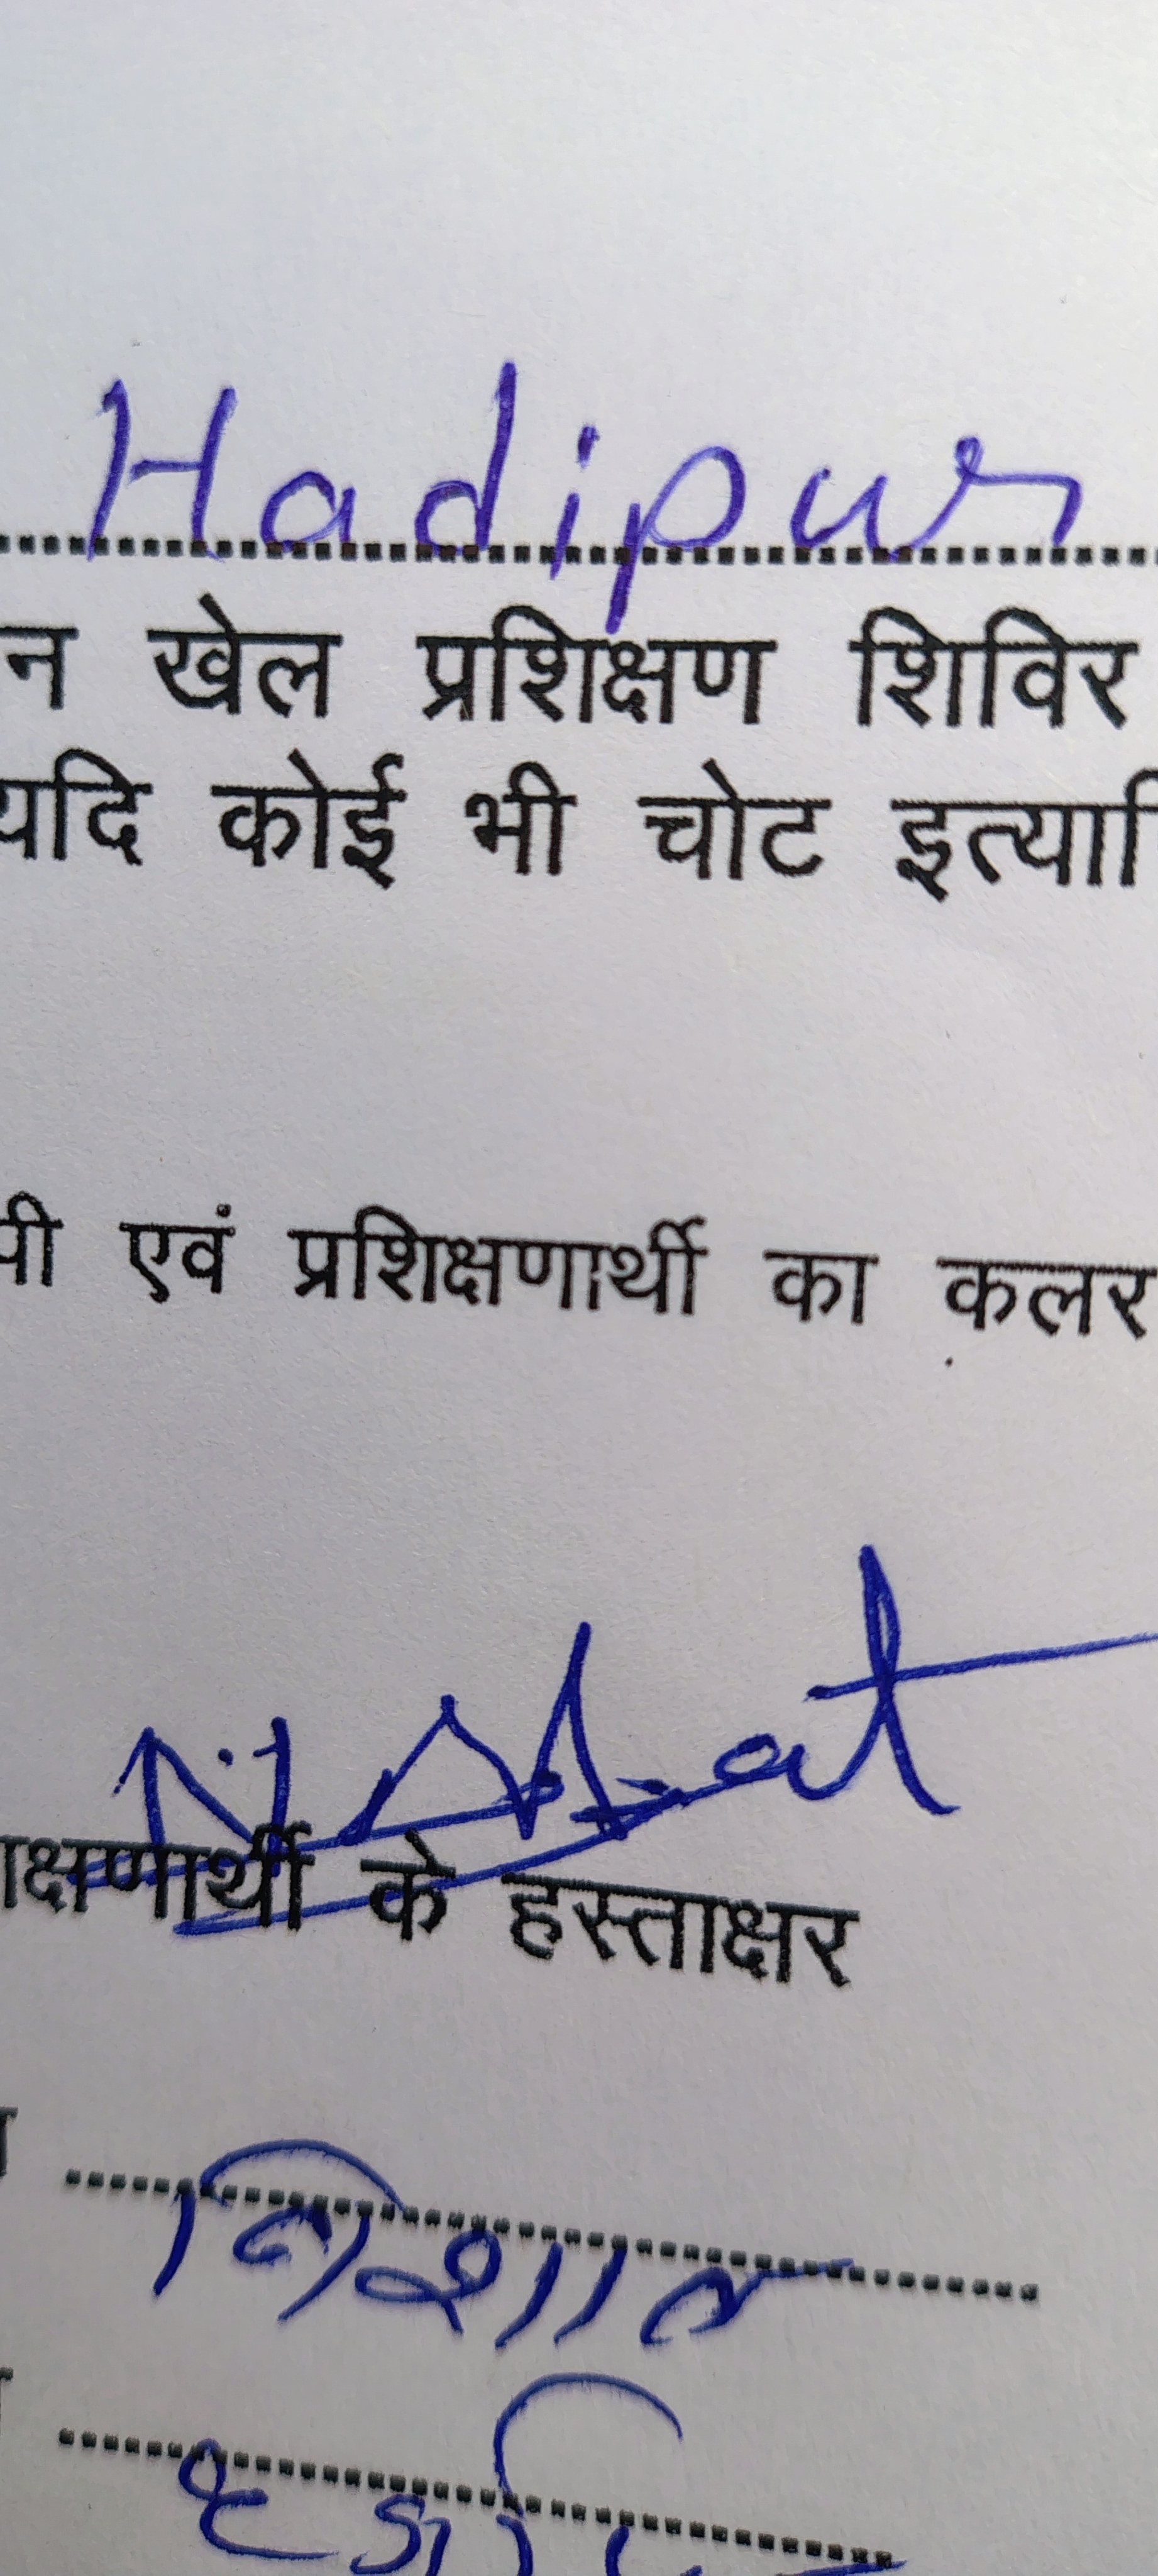 Hadipur
न खेल प्रशिक्षण शिविर
यदि कोई भी चोट इत्यादि
पी एवं प्रशिक्षणार्थी का कलर
क्षणार्थी के हस्ताक्षर
निशांत